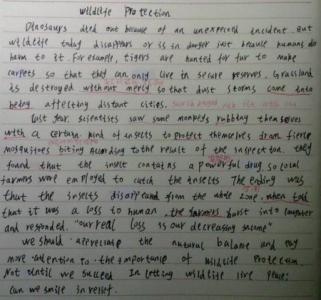 wildlife Protection
Dinosaurs died out because of an unexpected incident. But
wildlife today disappears or is in danger just because humans do
harm to it. For example, tigers are hunted for fur to make
carpets so that they can only live in secure reserves. Grassland
is destroyed without mercy so that dust storms come into
being affecting distant cities.
Last year, scientists saw some monkeys rubbing themselves
with a certain kind of insects to protect themselves from fierce
mosquitoes biting. According to the result of the inspection, they
found that the insect contains a powerful drug so local
farmers were employed to catch the insects. The ending was
that the insects disappeared from the whole zone. when told
that it was a loss to human, the farmers burst into laughter
and responded. "Our real loss is our decreasing income"
we should appreciate the natural balance and pay
more attention to the importance of wildlife Protection.
Not until we succeed in letting wildlife live peace
can we smile in relief.